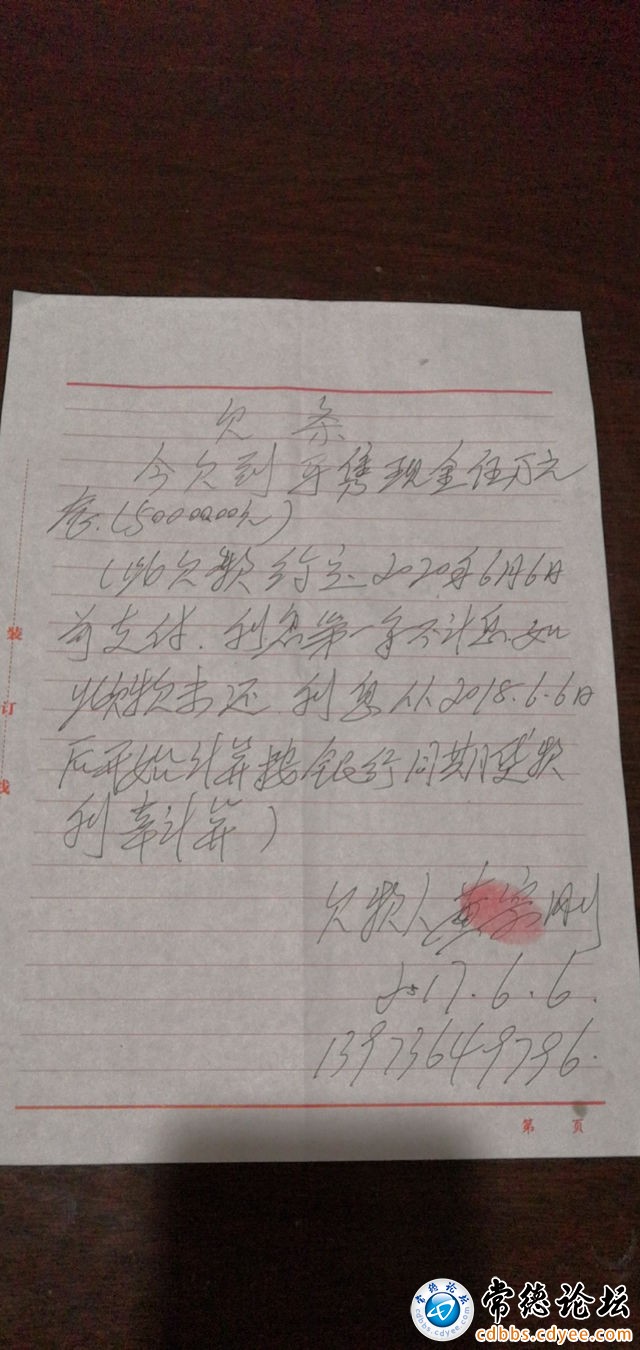 欠条
今欠到 现金伍万元
整.(50000.00元)
(此欠款约定.2020年6月6日
前支付.利息第一年不计息.如
欠款未还 利息从2018.6.6日
后开始计算按银行同期贷款
利率计算)
欠款人黄 刚
2017.6.6.
13973649796.
装
订
线
第 页
常德论坛
cdbbs.cdyee.com